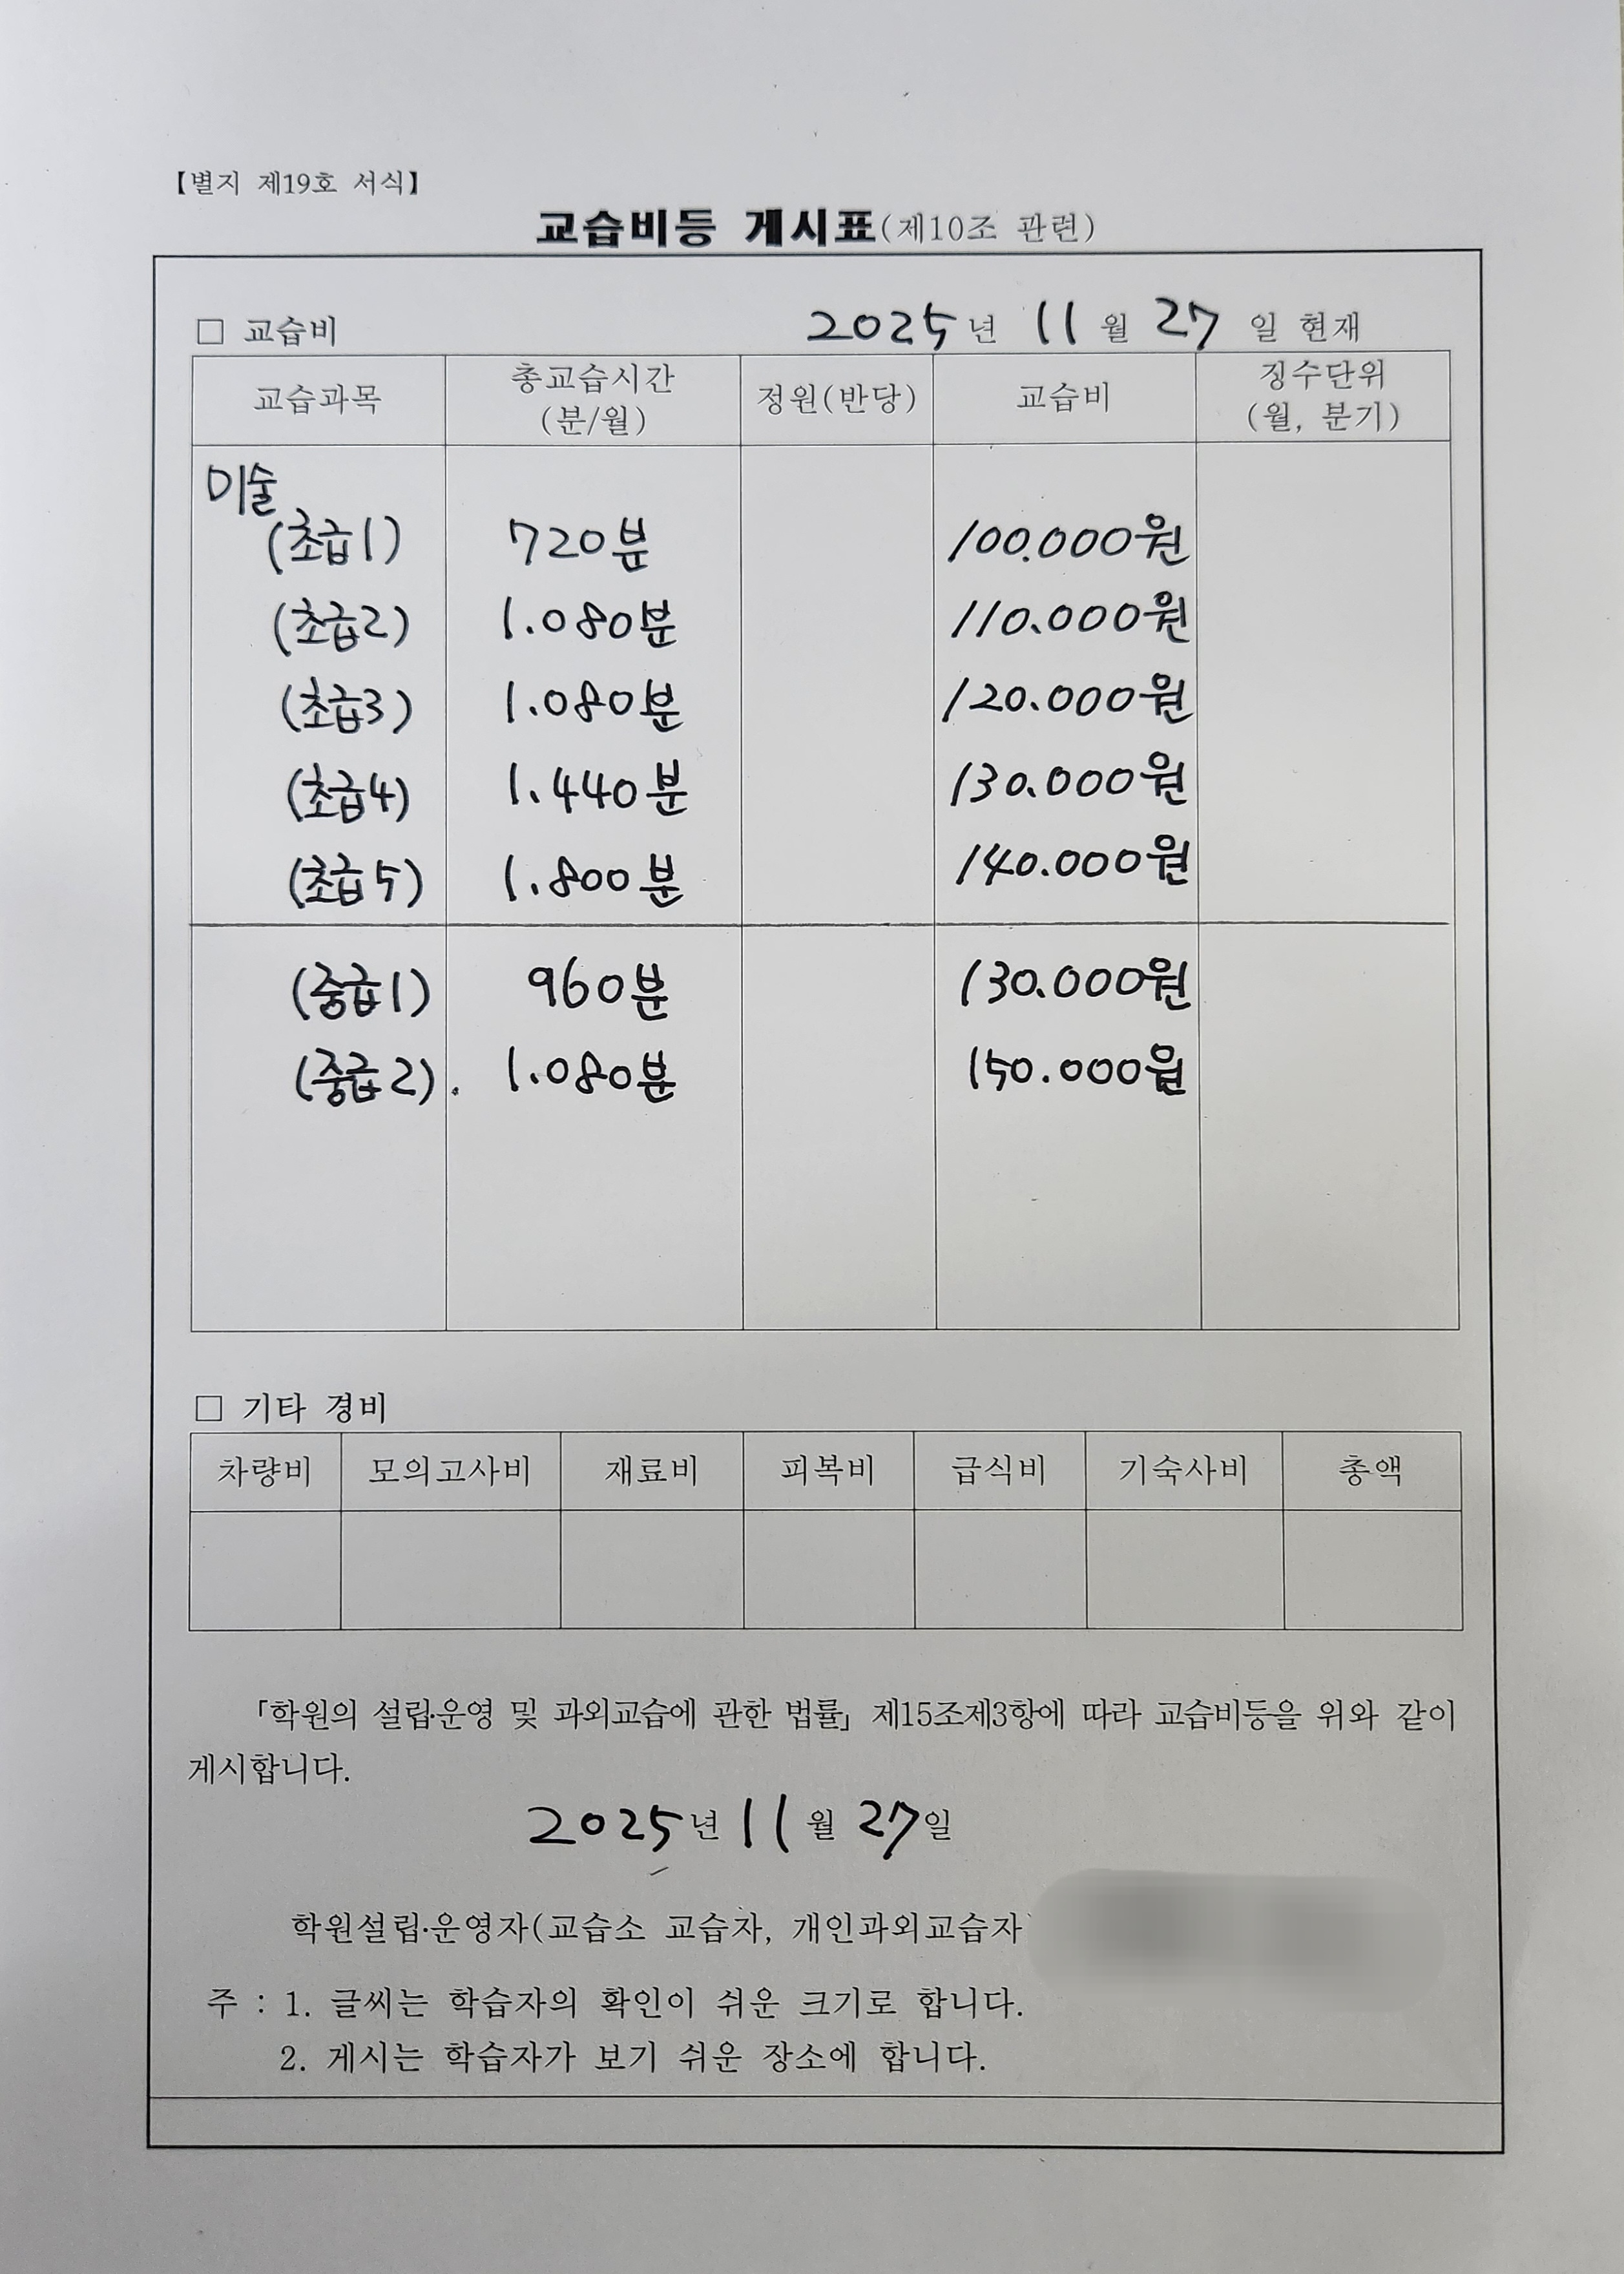 【별지 제19호 서식】
교습비등 게시표(제10조 관련)
□ 교습비 2025년 11월 27일 현재
교습과목 총교습시간 (분/월) 정원(반당) 교습비 징수단위 (월, 분기)
미술
(초급1) 720분 100.000원
(초급2) 1.080분 110.000원
(초급3) 1.080분 120.000원
(초급4) 1.440분 130.000원
(초급5) 1.800분 140.000원
(중급1) 960분 130.000원
(중급2). 1.080분 150.000원
□ 기타 경비
차량비 모의고사비 재료비 피복비 급식비 기숙사비 총액
「학원의 설립·운영 및 과외교습에 관한 법률」 제15조제3항에 따라 교습비등을 위와 같이
게시합니다.
2025년 11월 27일
학원설립·운영자(교습소 교습자, 개인과외교습자)
주 : 1. 글씨는 학습자의 확인이 쉬운 크기로 합니다.
2. 게시는 학습자가 보기 쉬운 장소에 합니다.